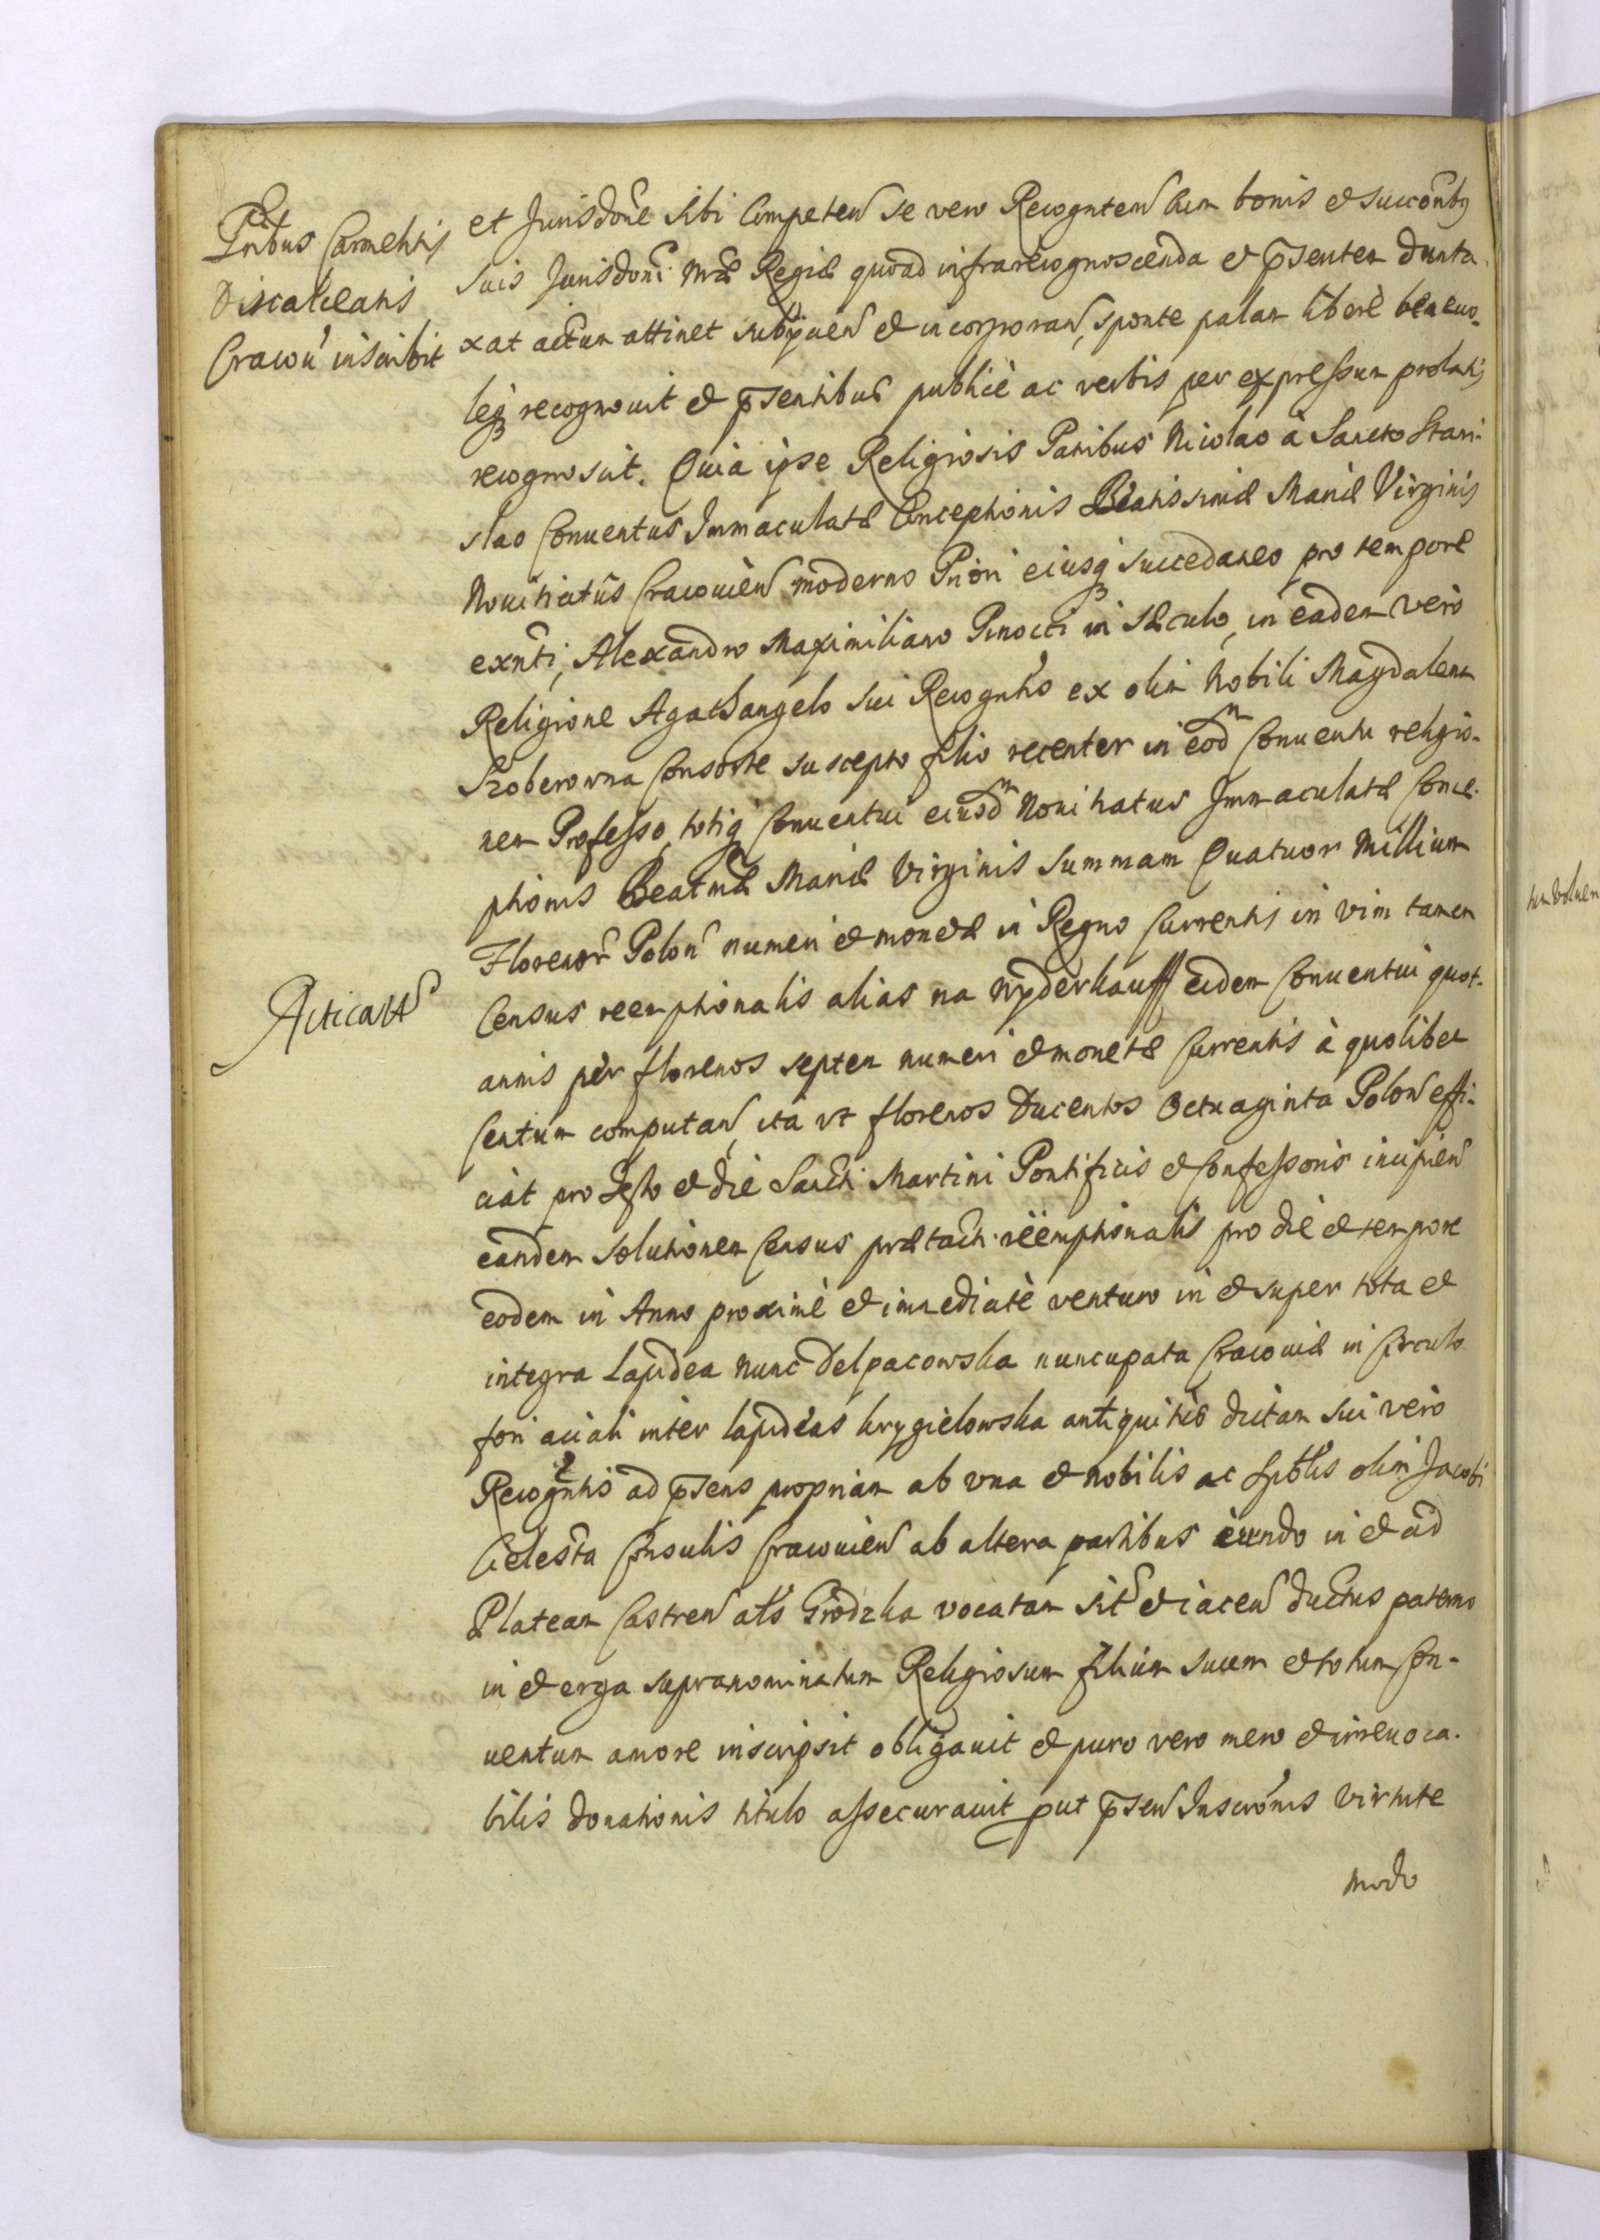 Prībus Carmelitis
Discalceatis
Cracou̅ inscribit
et Jurisdōne sibi Competen̅ se vero Recognten̅ cum bonis et succōnbꝫ
suis Jurisdōni Mtæ Regiæ quoad infrarecognoscenda et p̅sentem dunta-
xat actum attinet subÿcien̅ et incorporan̅, sponte palam liberè beneuo-
leqꝫ recognouit et p̅sentibus publicè ac verbis per expressum prolatis
recognoscit. Quia ipse Religiosis Patribus Nicolao à Sancto Stani-
slao Conuentus Immaculatæ Conceptionis Beatissimæ Mariæ Virginis
Nouitiatûs Cracouien̅ moderno Priori eiusqꝫ succedaneo pro tempore
exn̅ti, Alexandro Maximiliano Pinocci in sæculo, in eadem verò
Religione Agathangelo sui Recogntis ex olim Nobili Magdalena
Szoberowna Consorte suscepto filio recenter in eodm Conuentu religio-
nem Professo, totiqꝫ Conuentui eiusdm Nouitiatus Immaculatæ Conce-
ptionis Beatmæ Mariæ Virginis summam Quatuor Millium
Florenor̅ Polon̅ numeri et monetæ in Regno Currentis in vim tamen
Census reemptionalis alias na Wyderkauff eidem Conuentui quot-
annis per florenos septem numeri et monetæ Currentis à quolibet
Centum computan̅, ita vt florenos Ducentos Octuaginta Polon̅ effi-
ciat pro Festo et die Sancti Martini Pontificis et Confessoris incipien̅
eandem solutionem Census prætacti reëmptionalis pro die et tempore
eodem in Anno proximè et immediatè venturo in et super tota et
integra Lapidea nunc Delpacowska nuncupata Cracouiæ in Circulo
fori aciali inter lapideas krygielowska antiquitùs dictam sui verò
Recogntis ad p̅sens propriam ab vna et Nobilis ac Spblis olim Jacobi
Celesta Consulis Cracouien̅ ab altera partibus eundo in et ad
Plateam Castren̅ als Grodzka vocatam sit̅ et iacen̅ ductus paterno
in et erga supranominatum Religiosum filium suum et totum Con-
uentum amore inscripsit obligauit et puro vero mero et irreuoca-
bilis donationis titulo assecurauit put p̅sen̅ Inscrōnis virtute
modo
Acticatæ